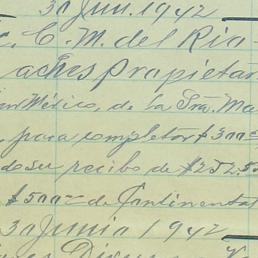 30 Jun. 1942
C. M. del Rio
aches propietar
en México, de la Sra. Ma
para completar $300
do su recibo de $252.5
$500 de Continental
30 Junio 1942